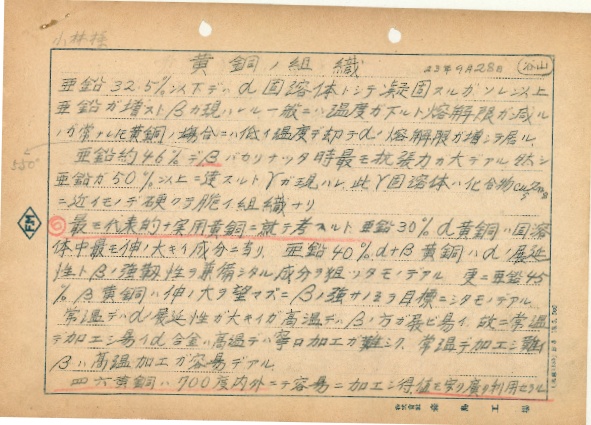 小林 様
黄銅ノ組織 23年9月28日 谷山
亜鉛32.5%以下デハα固溶体トシテ凝固スルガソレ以上
亜鉛ガ増ストβガ現ハレル一般ニハ温度ガ下ルト熔解限ガ減ル
ノガ常ナルモ黄銅ノ場合ニハ低イ温度デ却テαノ熔解限ガ増シテ居ル
550°
亜鉛約46%デβバカリナッタ時最モ抗張力ガ大デアル 然シ
亜鉛ガ50%以上ニ達スルトγガ現ハレ、此γ固溶体ハ化合物Cu5Zn8
ニ近イモノデ硬ク脆イ組織ナリ
◎最モ代表的ナ実用黄銅ニ就テ考スルト 亜鉛30%α黄銅ハ固溶
体中最モ伸ノ大キイ成分ニ当リ、亜鉛40%α+β黄銅ハαノ展延
性トβノ強靱性ヲ兼備シタル成分ヲ狙ッタモノデアル 更ニ亜鉛45
%β黄銅ハ伸ノ大ヲ望マズニβノ強サノミヲ目標ニシタモノデアル
常温デハαノ展延性ガ大キイガ高温デハβノ方ガ展ビ易イ、故ニ常温
デ加工シ易イα合金ハ高温デハ寧ロ加工ガ難シク、常温デ加工シ難イ
βハ高温加工ガ容易デアル
四六黄銅ハ700度内外ニテ容易ニ加工シ得、値モ安ク広ク利用セラル
FM
株式会社 工場